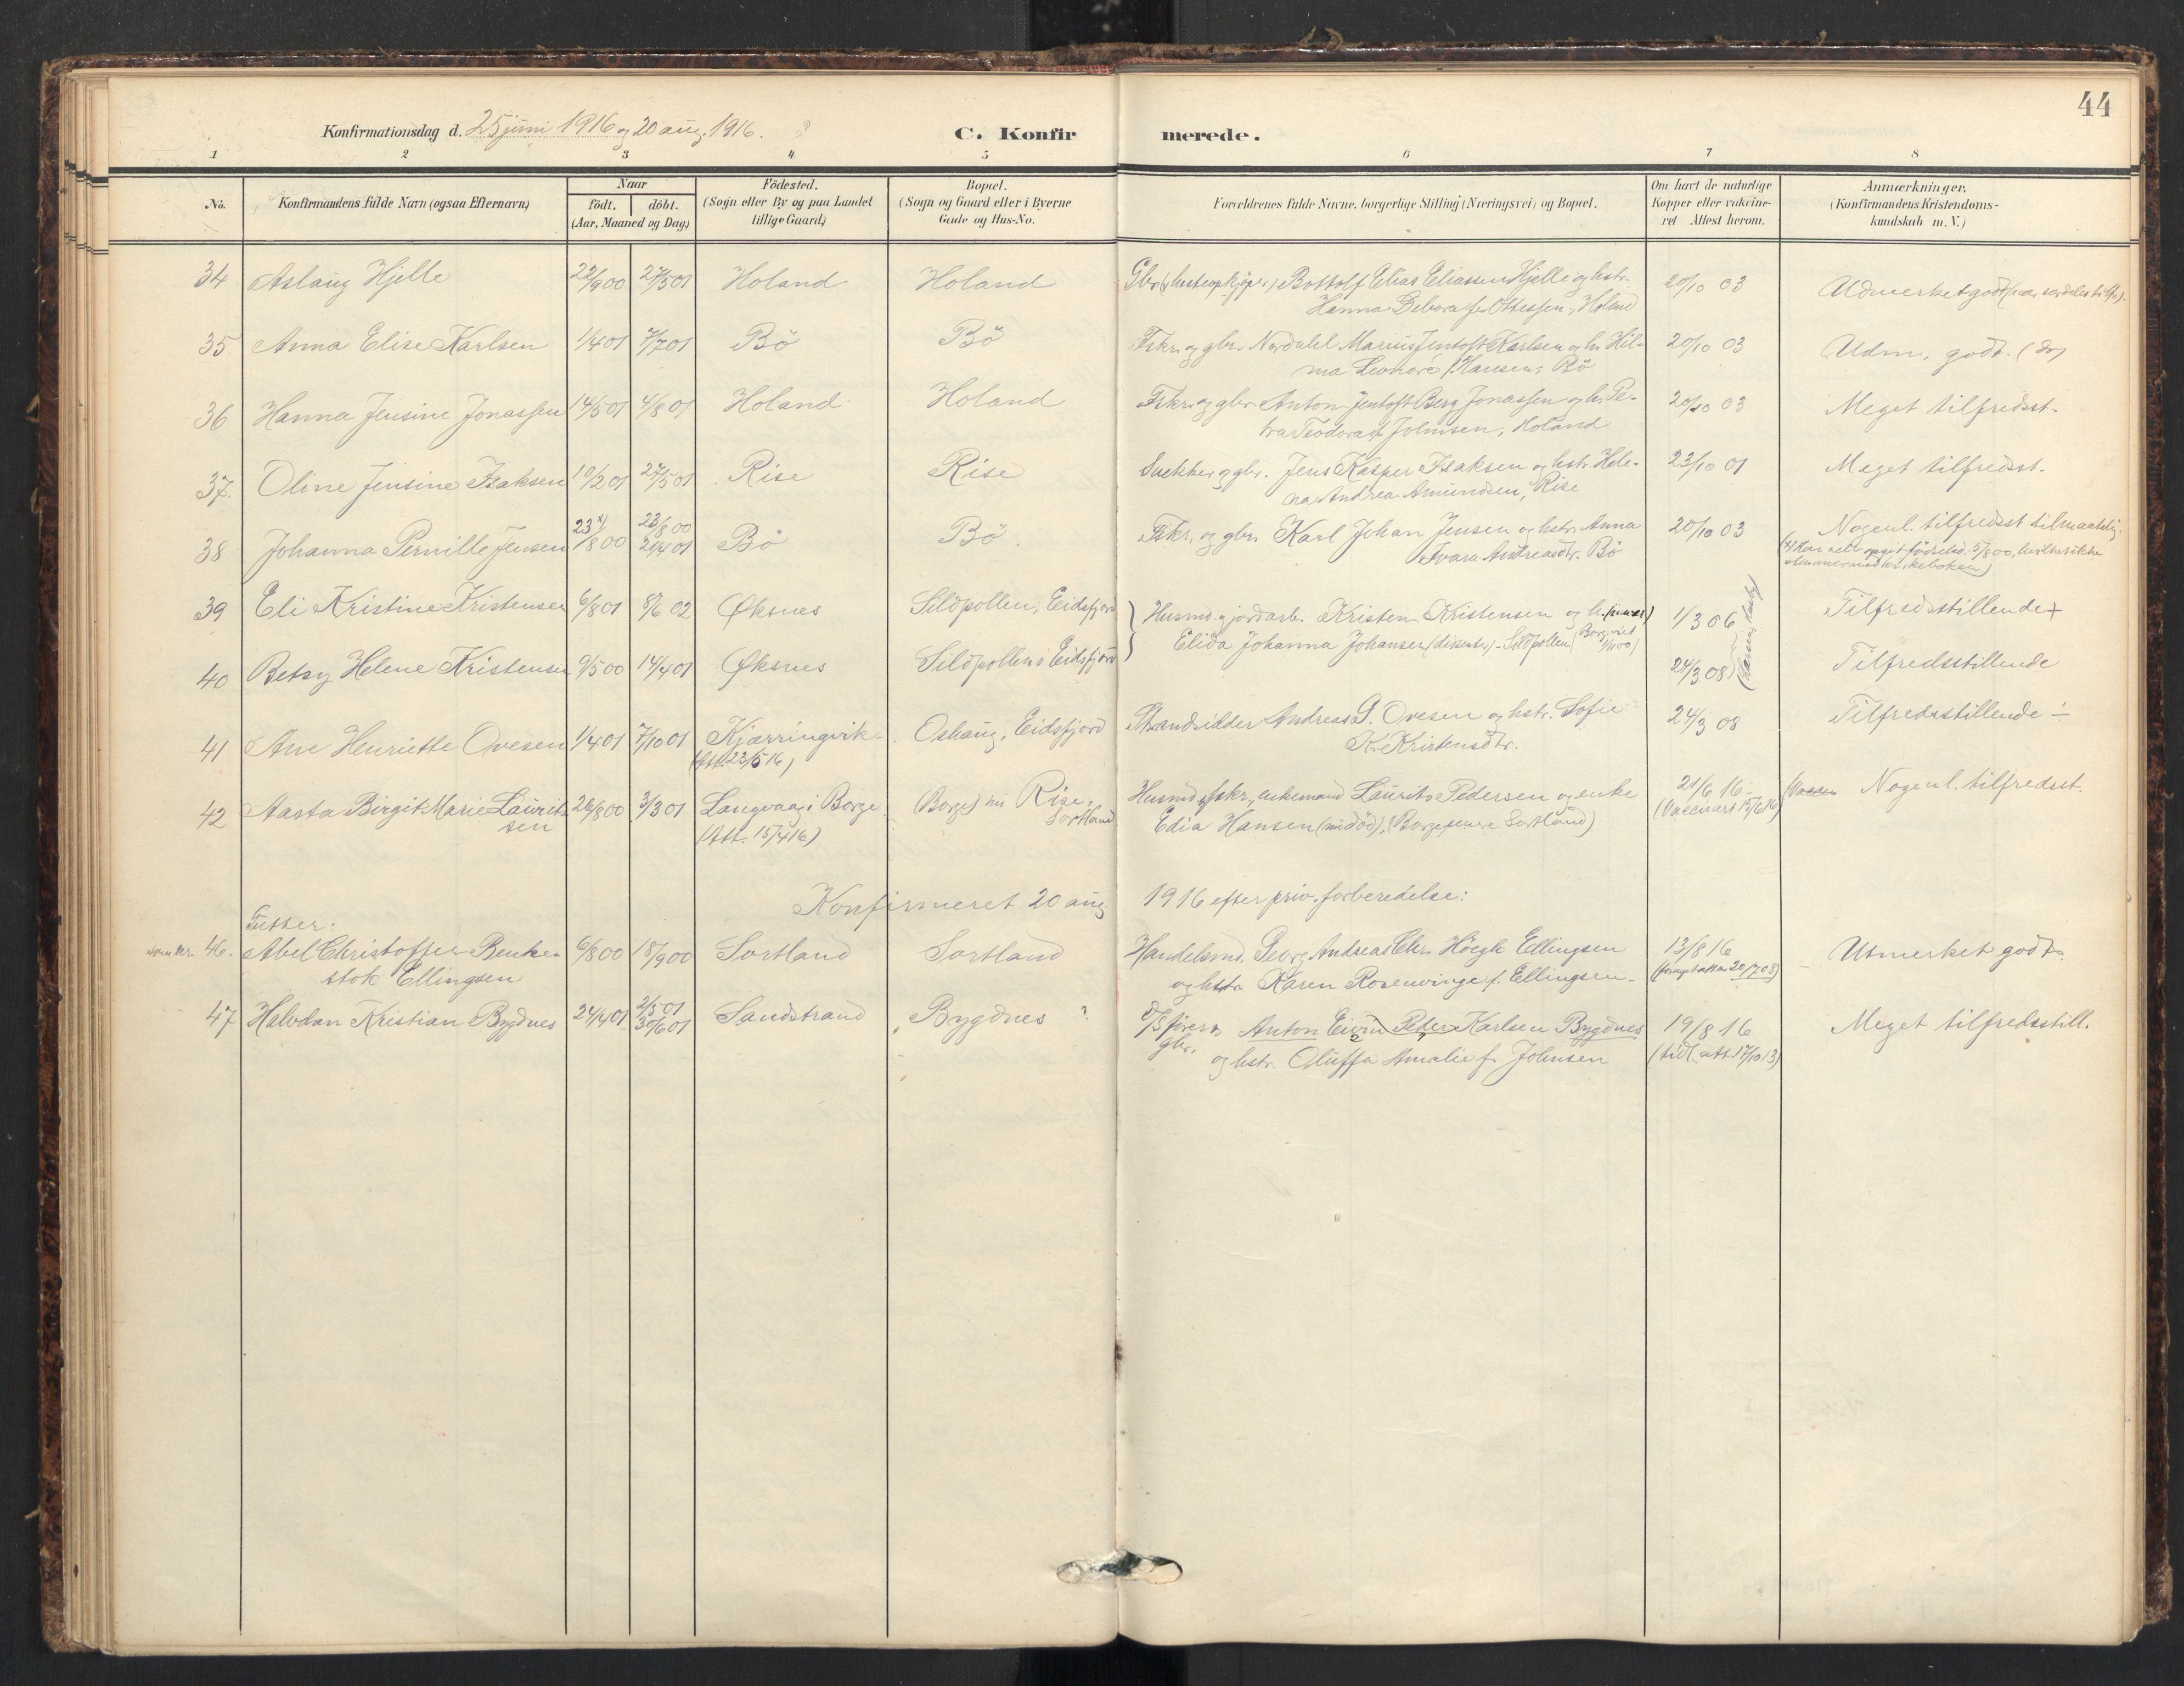 44
Konfirmationsdag d. 25 juni 1916 og 20 aug. 1916.
C. Konfirmerede.
1 2 3 4 5 6 7 8
No. Konfirmandens fulde Navn (ogsaa Efternavn) Naar født. døbt. (Aar, Maaned og Dag) Födested. (Sogn eller By og paa Landet tillige Gaard) Bopæl. (Sogn og Gaard eller i Byerne Gade og Hus-No. Forældrenes fulde Navne, borgerlige Stilling (Næringsvei) og Bopæl. Om havt de naturlige Kopper eller vakcineret Attest herom. Anmærkninger. (Konfirmandens Kristendomskundskab m. V.)
34 Aslaug Hjelle 22/9 00 27/5 01 Holand Holand Gbr. Bottolf Elias Eliassen Hjelle og hstr. 20/10 03 Udmerket godt
Hanna Debora f. Ottessen, Holand
35 Anna Elise Karlsen 1/4 01 7/7 01 Bö Bö Fskr. og gbr. Nordahl Marius Jentoft Karlsen og h. Hil- 20/10 03 Udm. godt. (do)
ma Leonore f. Hansen, Bö
36 Hanna Jensine Jonassen 14/5 01 4/8 01 Holand Holand Fskr. og gbr. Anton Jentoft Berg Jonassen og h. Pe- 20/10 03 Meget tilfredsst.
tra Teodora f. Johnsen, Holand
37. Oline Jensine Isaksen 10/2 01 27/5 01 Rise Rise Snekker og gbr. Jens Kasper Isaksen og hstr. Hele- 23/10 01 Meget tilfredsst.
na Andrea Amundsen, Rise
38 Johanna Pernille Jensen 23x)/8 00 23/8 00 21/4 01 Bö Bö. Fskr. og gbr. Karl Johan Jensen og hstr. Anna 20/10 03 Nogenl. tilfredsst. tilmaadelig.
Ivara Andreasdtr. Bö
stemmer med kirkeboken)
39 Eli Kristine Kristensen 6/8 01 8/6 02 Øksnes Sildpollen, Eidsfjord Husmd. og jordarb. Kristen Kristensen og h. 1/3 06 Tilfredsstillende +
Elida Johanna Johansen (dissenter) - Sildpollen
40 Betsy Helene Kristensen 9/5 00 14/4 01 Øksnes Sildpollen i Eidsfjord 24/3 08 Tilfredsstillende
41 Ane Henriette Ovesen 1/4 01 7/10 01 Kjærringvik Oshaug, Eidsfjord Strandsidder Andreas G. Ovesen og hstr. Sofie 24/3 08 Tilfredsstillende ÷
(Att. 23/5 16) Kr. Kristensdtr.
42 Aasta Birgit Marie Laurit- 26/8 00 3/3 01 Langvaag i Borge Borge, nu Rise, Husmd. og fskr., enkemand Laurits Pedersen og enke 21/6 16 Nogenl. tilfredsst.
sen (Att. 15/4 16) Sortland Edia Hansen (nu död), (Borge Sortland) (Vaccinert 15/6 16)
Konfirmeret 20 aug. 1916 efter priv. forberedelse:
Gutter:
46. Abel Christoffer Benke- 6/8 00 18/9 00 Sortland Sortland Handelsmd. Georg Andreas Chr. Höegh Ellingsen 13/8 16 Utmerket godt.
stok Ellingsen og hstr. Karen Rosenvinge f. Ellingsen
47 Halvdan Kristian Bygdnes 24/4 01 2/5 01 30/6 01 Sandstrand Bygdnes ? D/S förer og Anton Eivin Peder Karlsen Bygdnes 19/8 16 Meget tilfredsstill.
gbr. og hstr. Oluffa Amalie f. Johnsen (tidl. att. 17/10 13)